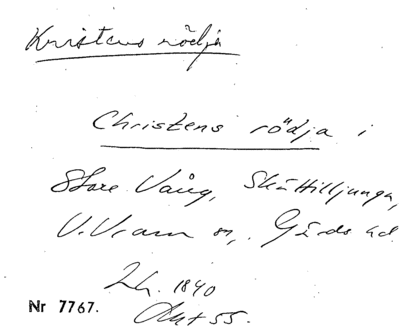 Kristens rödja
Christens rödja i
Store Vång, Skättilljunga,
V. Vram sn, Gärds hd.
Lh. 1840
Akt 55.
Nr 7767.